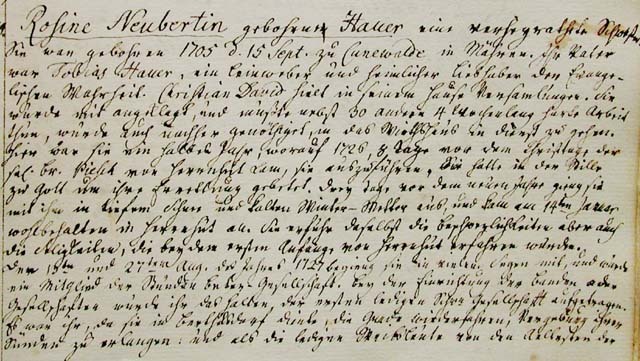 Rosine Neubertin gebohrne Hauer eine verheyrathete Schwester
Sie war gebohren 1705 d. 15 Sept. zu Cunewalde in Mähren. Ihr Vater
war Tobias Hauer, ein Leinweber und heimlicher Liebhaber der Evange-
lischen Wahrheit. Christian David hielt in seinem Hause Versamlungen. Sie
wurde mit angeklagt, und mußte nebst 30 andern 4 Wochenlang harte Arbeit
thun, wurde auch nachher genöthiget, in das Wirthshaus in Dienst zu gehen.
Hier war sie ein halbes Jahr, worauf 1726, 8 Tage vor dem Christtage der
sel. br. von Herrnhut kam, sie auszuführen. Sie hatte in der Stille
zu Gott um ihre Errettung gebetet. Drey Tage vor dem neuen Jahre ging sie
mit ihm in tiefem Schnee und kalten Winter-Wetter aus, und kam am 14ten Januar
wohlbehalten in Herrnhut an. Sie erfuhr daselbst die beschwerlichkeiten aber auch
die Seligkeiten, die bey dem ersten Anfange von Herrnhut erfahren wurden.
Den 13ten und 27ten Aug. des Jahres 1727 beging sie in vielem Segen mit, und wurde
ein Mitglied der Stunden bether Gesellschaft. bey der Einrichtung der banden oder
Gesellschaften wurde ihr das halten der ersten ledigen Schw. Gesellschaft aufgetragen.
Es war ihr, da sie in Berthelsdorf diente, die Gnade wiederfahren, Vergebung ihrer
Sünden zu erlangen: und als die ledigen Weibsleute von den Aeltesten der